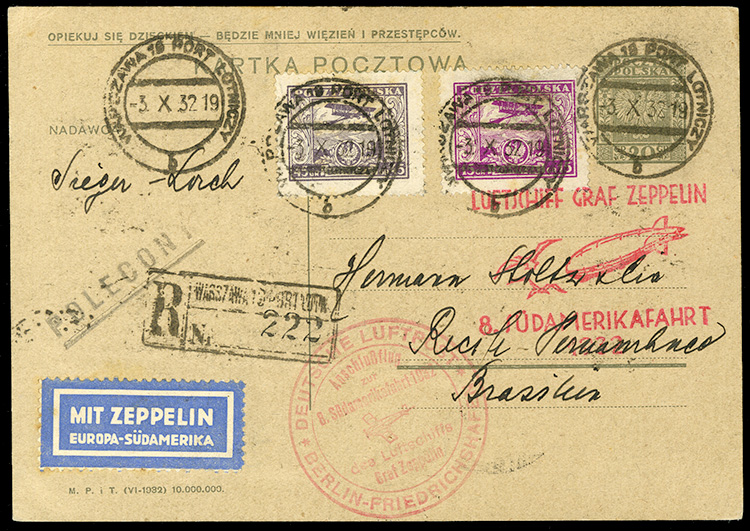 OPIEKUJ SIĘ DZIECKIEM — BĘDZIE MNIEJ WIĘZIEŃ I PRZESTĘPCÓW.
KARTKA POCZTOWA
WARSZAWA 19 PORT LOTNICZY
-3. X. 32 19
b
POCZTA POLSKA
-3. X 32 19
b
POCZTA POLSKA
-3. X 32 19
b
WARSZAWA 19 PORT LOTNICZY
POLSKA
-3. X 32 19
20
b
NADAWCA
Sieger - Lorch
LUFTSCHIFF GRAF ZEPPELIN
POLECONY
Hermann
8. SÜDAMERIKAFAHRT
1932
R WARSZAWA 19 PORT LOTN.
N. 222
Recife Pernambuco
Brasilien
DEUTSCHE LUFTPOST
Anschlußflug
zur
8. Südamerikafahrt 1932
des Luftschiffs
Graf Zeppelin
BERLIN-FRIEDRICHSHAFEN
MIT ZEPPELIN
EUROPA-SÜDAMERIKA
M. P. i T. (VI-1932) 10.000.000.